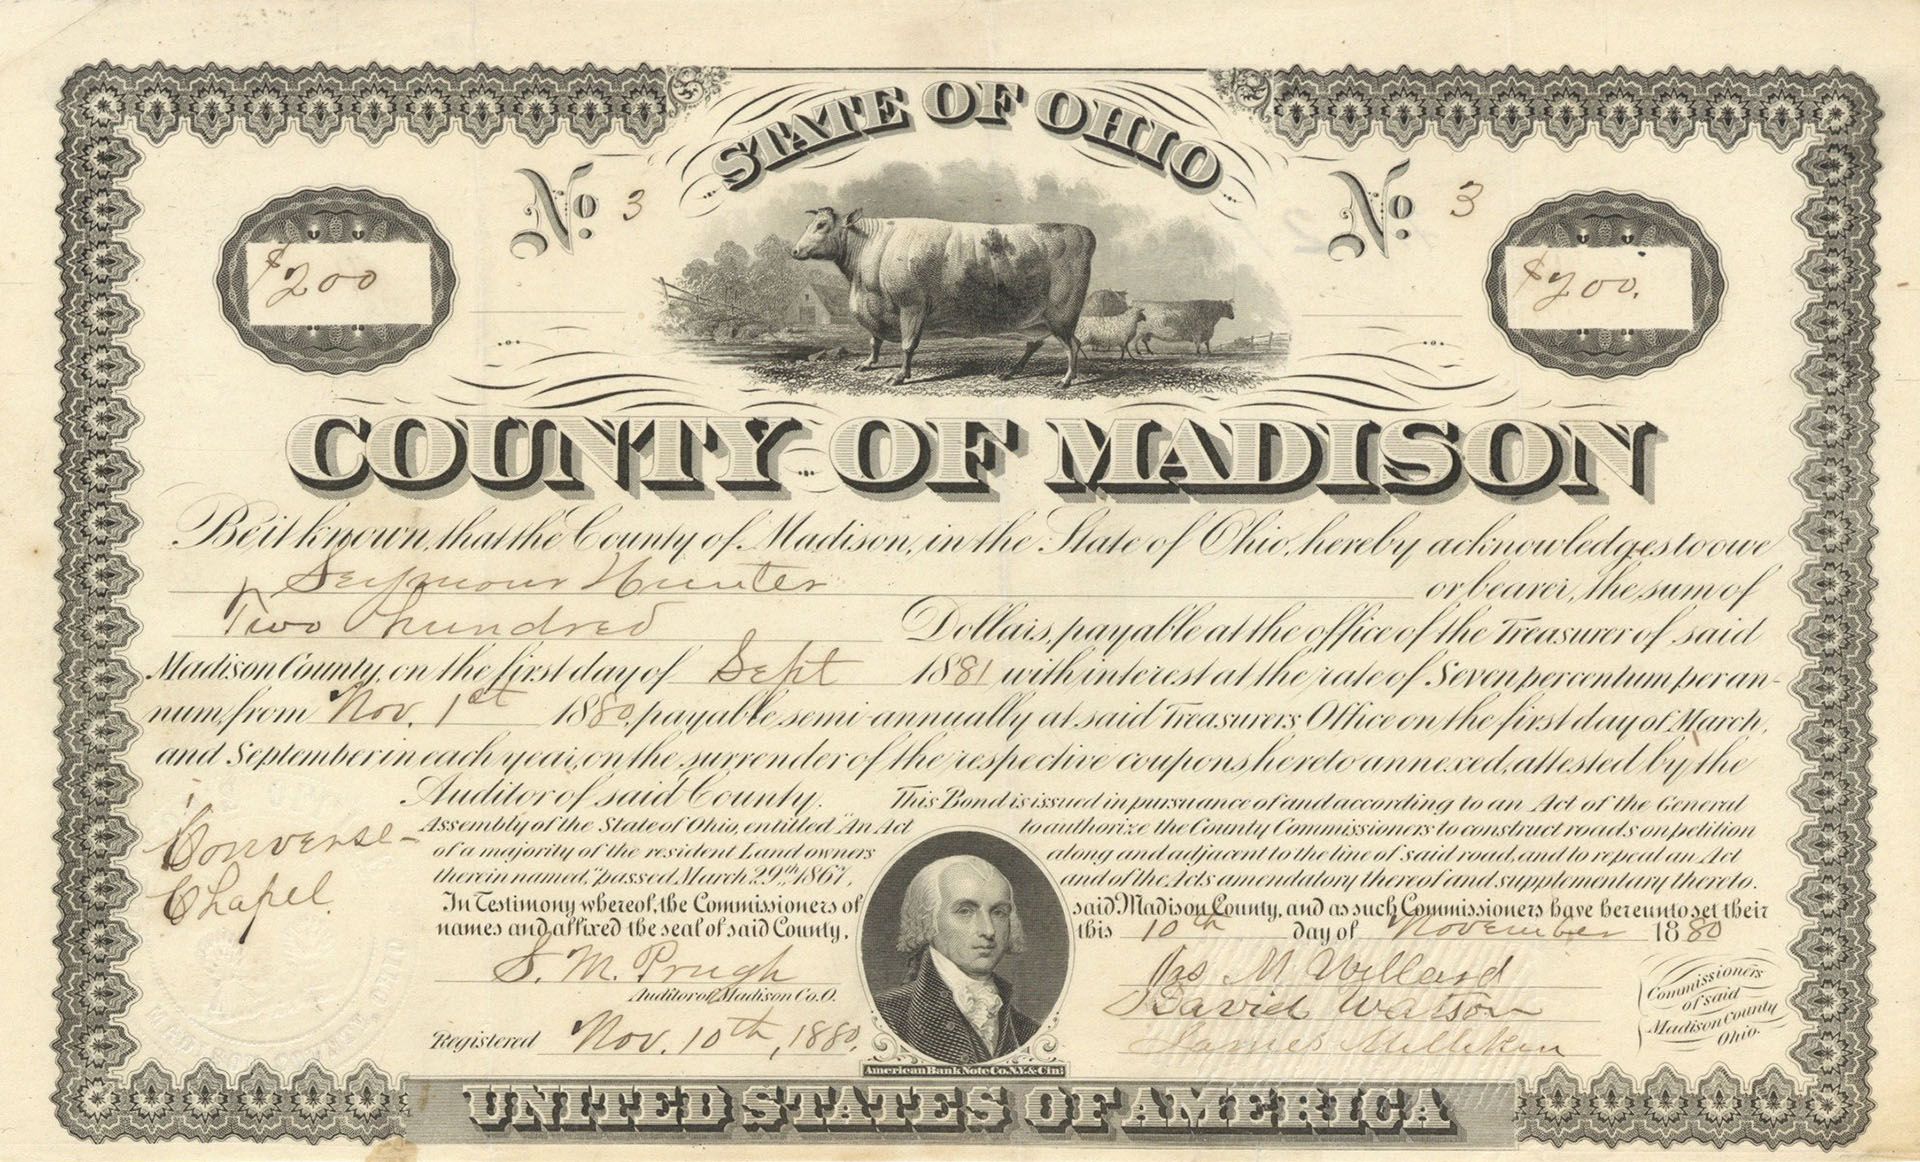 STATE OF OHIO
No. 3
No. 3
$200
$200.
COUNTY OF MADISON
Be it known, that the County of Madison, in the State of Ohio, hereby acknowledges to owe
Seymour Hunter or bearer, the sum of
Two hundred Dollars, payable at the office of the Treasurer of said
Madison County, on the first day of Sept 1881 with interest at the rate of Seven per centum per an-
num, from Nov. 1st 1880, payable semi-annually at said Treasurers Office on the first day of March,
and September in each year, on the surrender of the respective coupons hereto annexed, attested by the
Auditor of said County. This Bond is issued in pursuance of and according to an Act of the General
Assembly of the State of Ohio, entitled "An Act to authorize the County Commissioners to construct roads on petition
of a majority of the resident Land owners along and adjacent to the line of said road, and to repeal an Act
therein named," passed March 29th 1867, and of the Acts amendatory thereof and supplementary thereto.
In Testimony whereof, the Commissioners of said Madison County, and as such Commissioners have hereunto set their
names and affixed the seal of said County, this 10th day of November 1880
Converse
Chapel.
S. M. Prugh
Auditor of Madison Co. O.
Registered Nov. 10th, 1880.
Jas M Willard
David Watson
James Milliken
Commissioners
of said
Madison County
Ohio.
American Bank Note Co. N.Y. & Cin:
UNITED STATES OF AMERICA